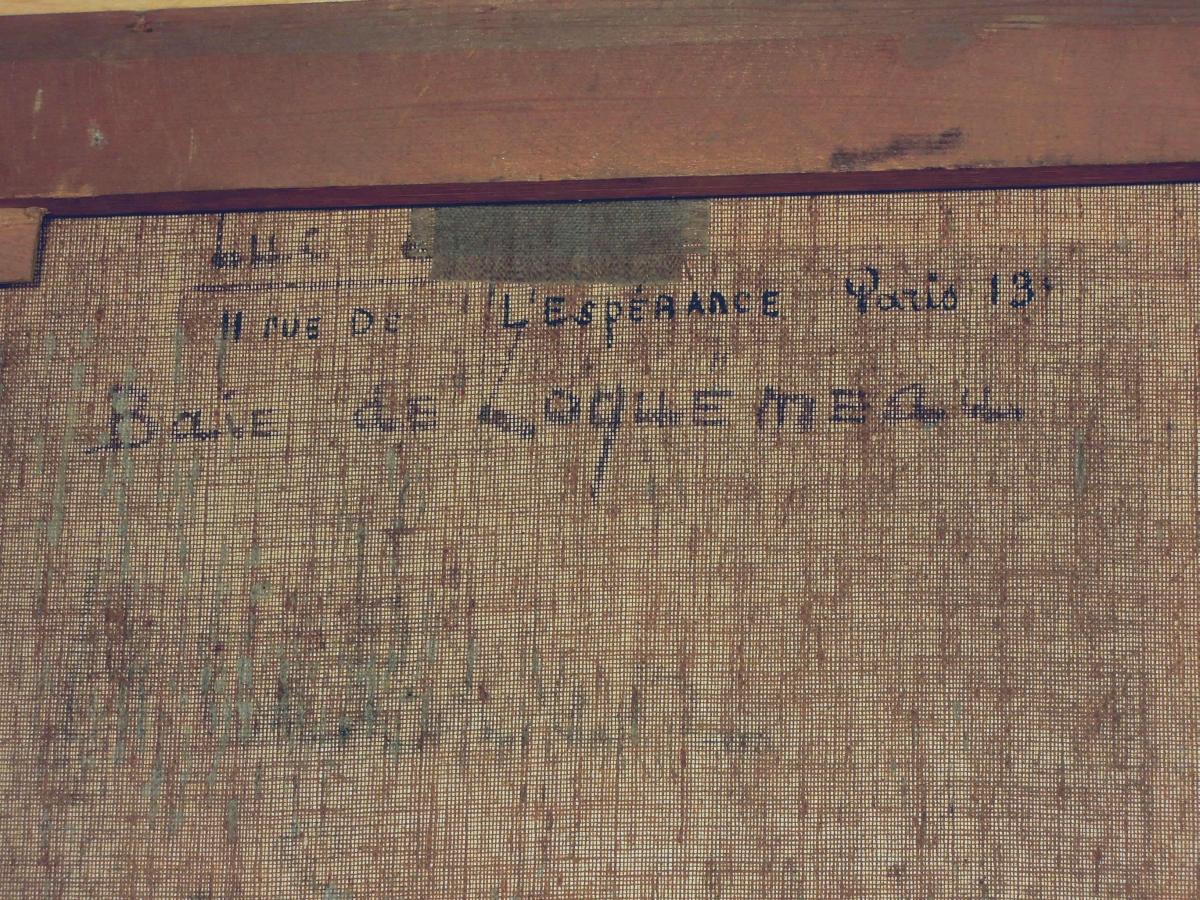 Luc
11 rue DE L'EspÉRANCE Paris 13e
Baie de LoquEmEau